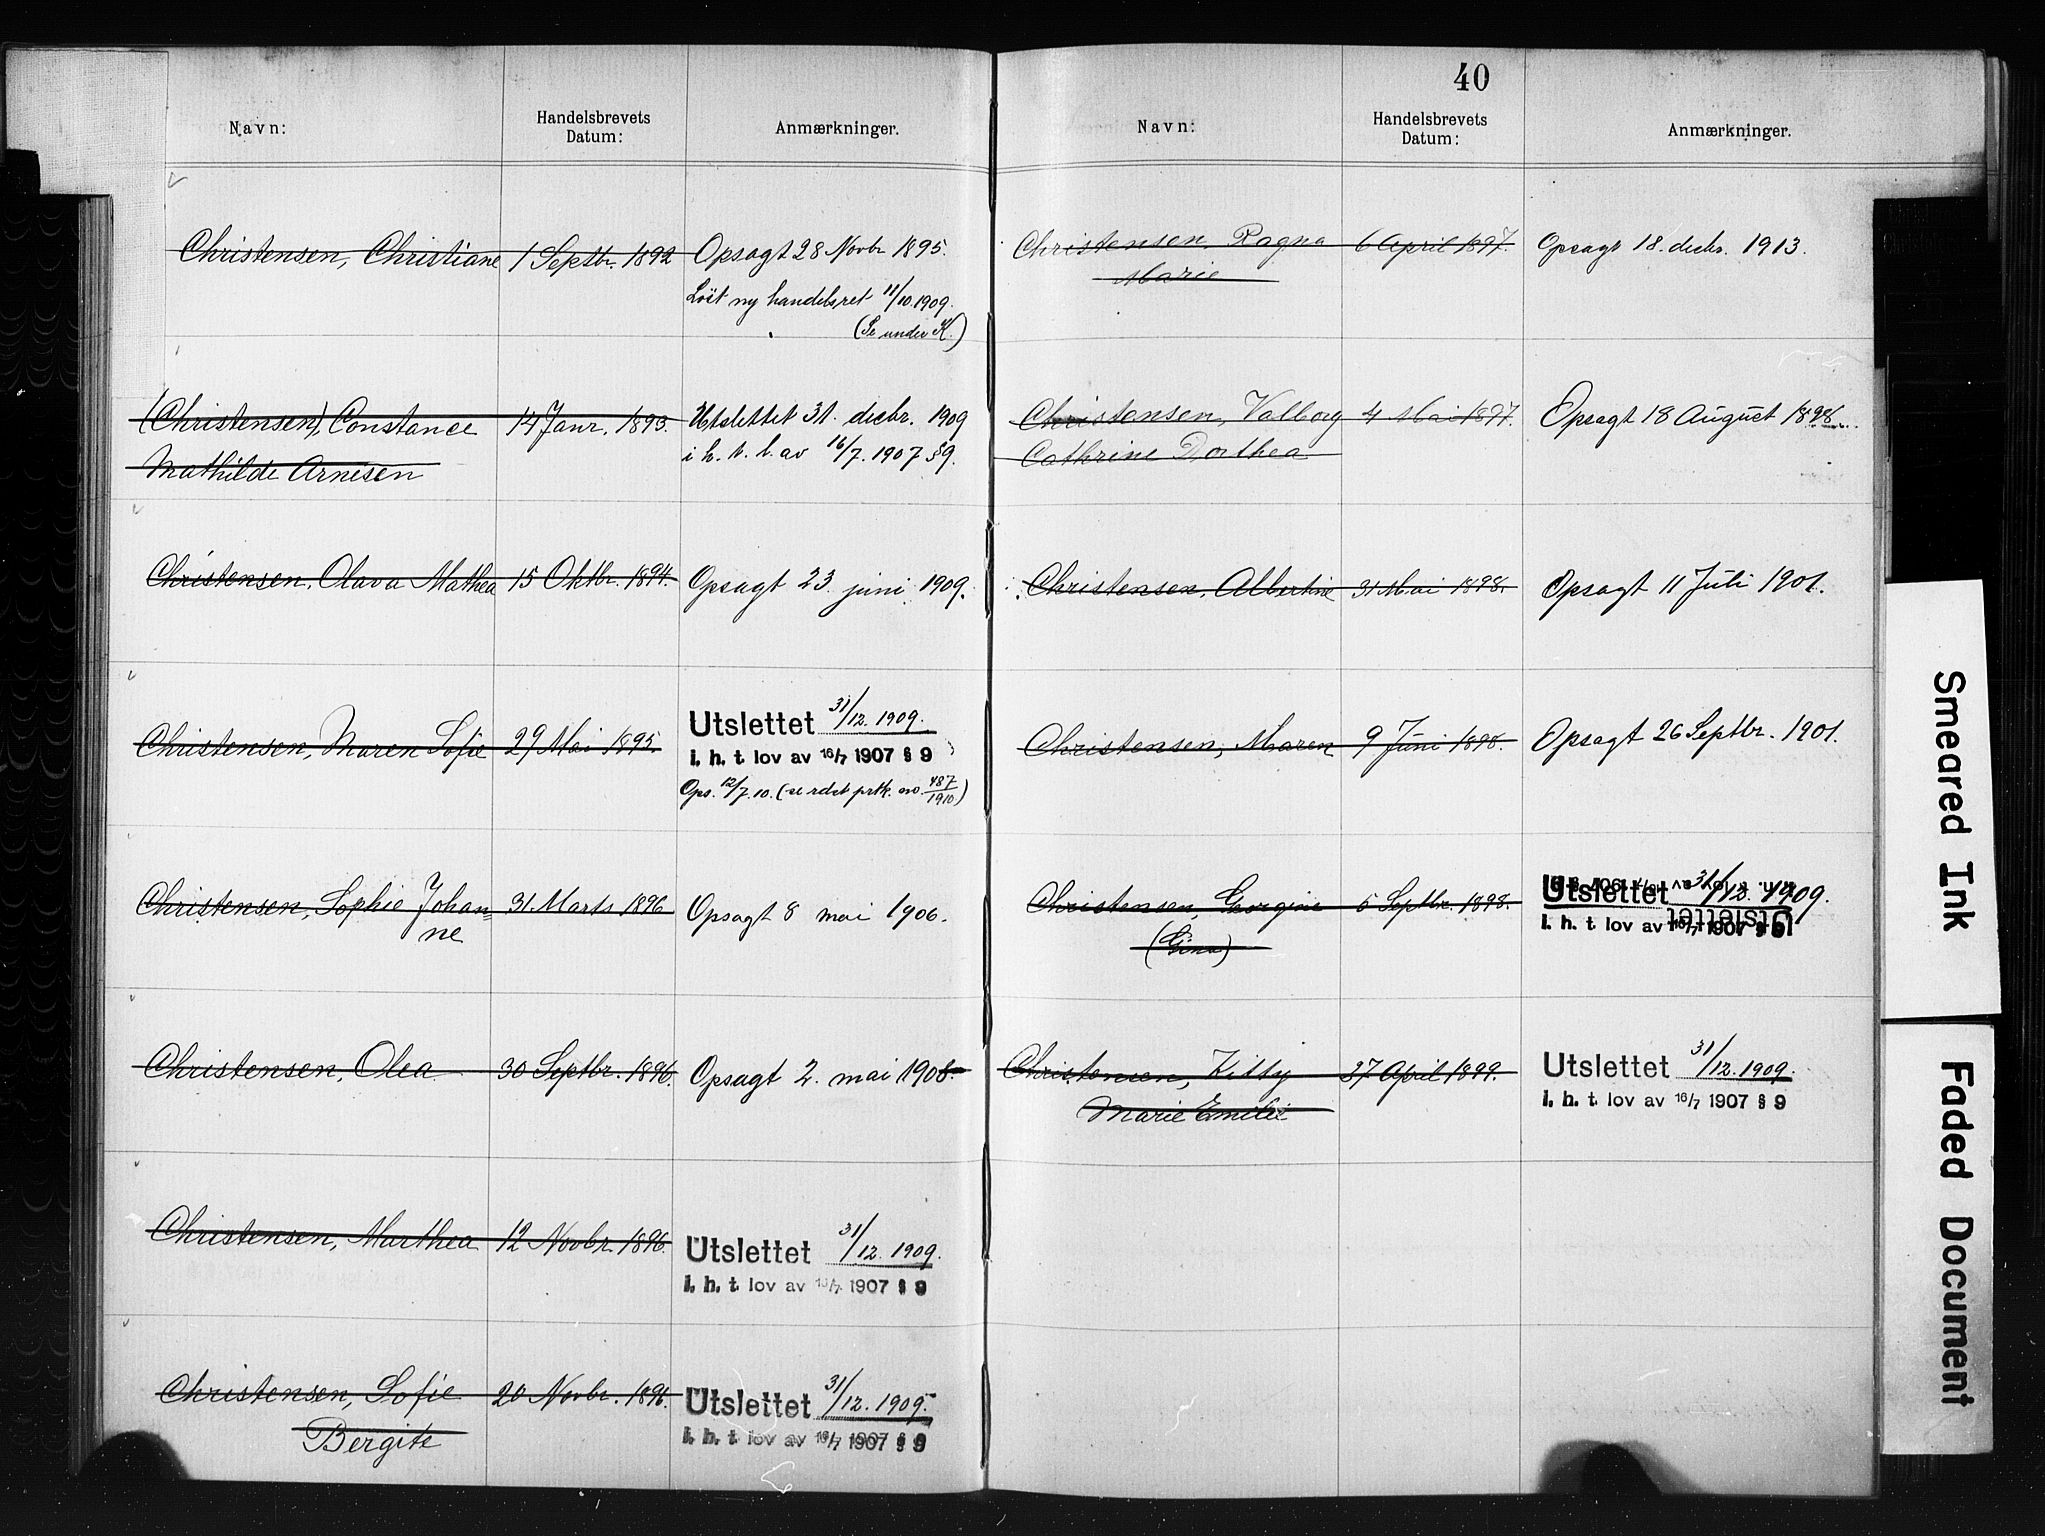 Navn:
Handelsbrevets
Datum:
Anmærkninger.
Christensen, Christiane
1 Septbr. 1892
Opsagt 28 Novbr 1895.
Löst ny handelsret 11/10.1909.
(Se under K.)
(Christensen), Constance
14 Janr. 1893.
Utslettet 31. decbr. 1909
Mathilde Arnesen
i h. t. l. av 16/7. 1907 § 9.
Christensen, Olava Mathea
15 Oktbr. 1894.
Opsagt 23. juni 1909.
Christensen, Maren Sofie
29 Mai 1895.
Utslettet 31/12. 1909.
i. h. t. lov av 16/7 1907 § 9
Ops. 12/7.10. (se rdst prtk. no. 487/1910)
Christensen, Sophie Johan-
ne
31. Marts 1896
Opsagt 8 mai 1906.
Christensen, Olea
30 Septbr. 1896.
Opsagt 2. mai 1908.
Christensen, Marthea
12 Novbr. 1896.
Utslettet 31/12. 1909.
i. h. t. lov av 16/7 1907 § 9
Christensen, Sofie
Bergite
20 Novbr. 1896.
Utslettet 31/12. 1909.
i. h. t. lov av 16/7 1907 § 9
40
Navn:
Handelsbrevets
Datum:
Anmærkninger.
Christensen, Ragna
Marie
6 April 1897.
Opsagt 18. decbr. 1913.
Christensen, Valborg
Cathrine Dorthea
4 Mai 1897.
Opsagt 18 August 1898.
Christensen, Albertine
31 Mai 1898.
Opsagt 11 Juli 1901.
Christensen, Maren
9 Juni 1898.
Opsagt 26 Septbr. 1901.
Christensen, Georgine
(Gina)
5 Septbr. 1898.
Utslettet 31/12. 1909.
i. h. t. lov av 16/7 1907 § 9
Utslettet
Christensen, Kitty
Marie Emilie
27 April 1899.
Utslettet 31/12. 1909.
i. h. t. lov av 16/7 1907 § 9
Smeared Ink
Faded Document